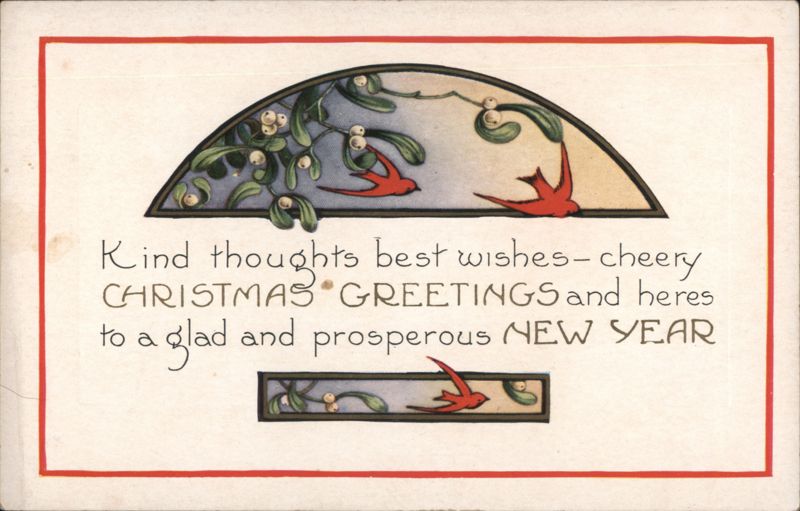 Kind thoughts best wishes – cheery
CHRISTMAS GREETINGS and heres
to a glad and prosperous NEW YEAR